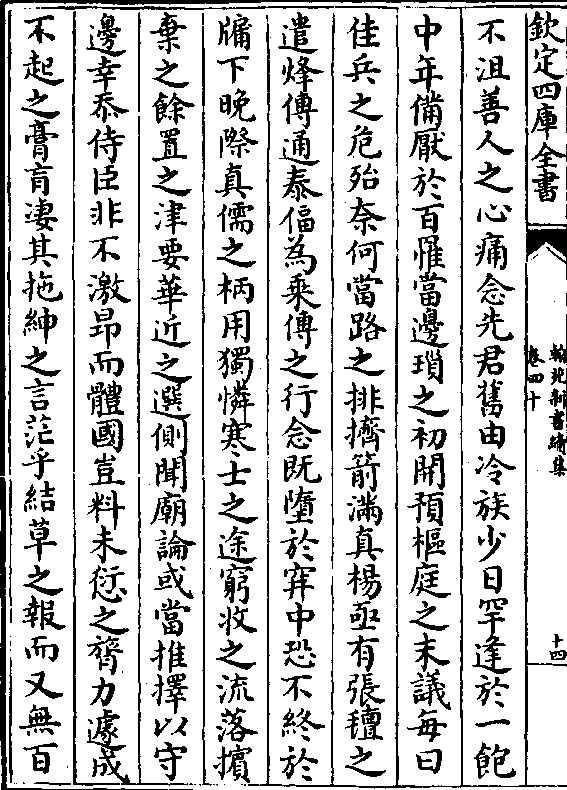 欽定四庫全書
翰苑新書續集
卷四十
十四
不沮善人之心痛念先君舊由冷族少日罕逢於一飽
中年備厭於百罹當邊瑣之初開預樞庭之末議每曰
佳兵之危殆奈何當路之排擠箭滿真楊亟有張䄠之
遣烽傳通泰偪為乘傳之行念既墮於穽中恐不終於
牖下晚際真儒之柄用獨憐寒士之途窮收之流落擯
棄之餘置之津要華近之選側聞廟論或當推擇以守
邊幸忝侍臣非不激昻而體國豈料未愆之膂力遽成
不起之膏肓淒其拖紳之言茫乎結草之報而又無百